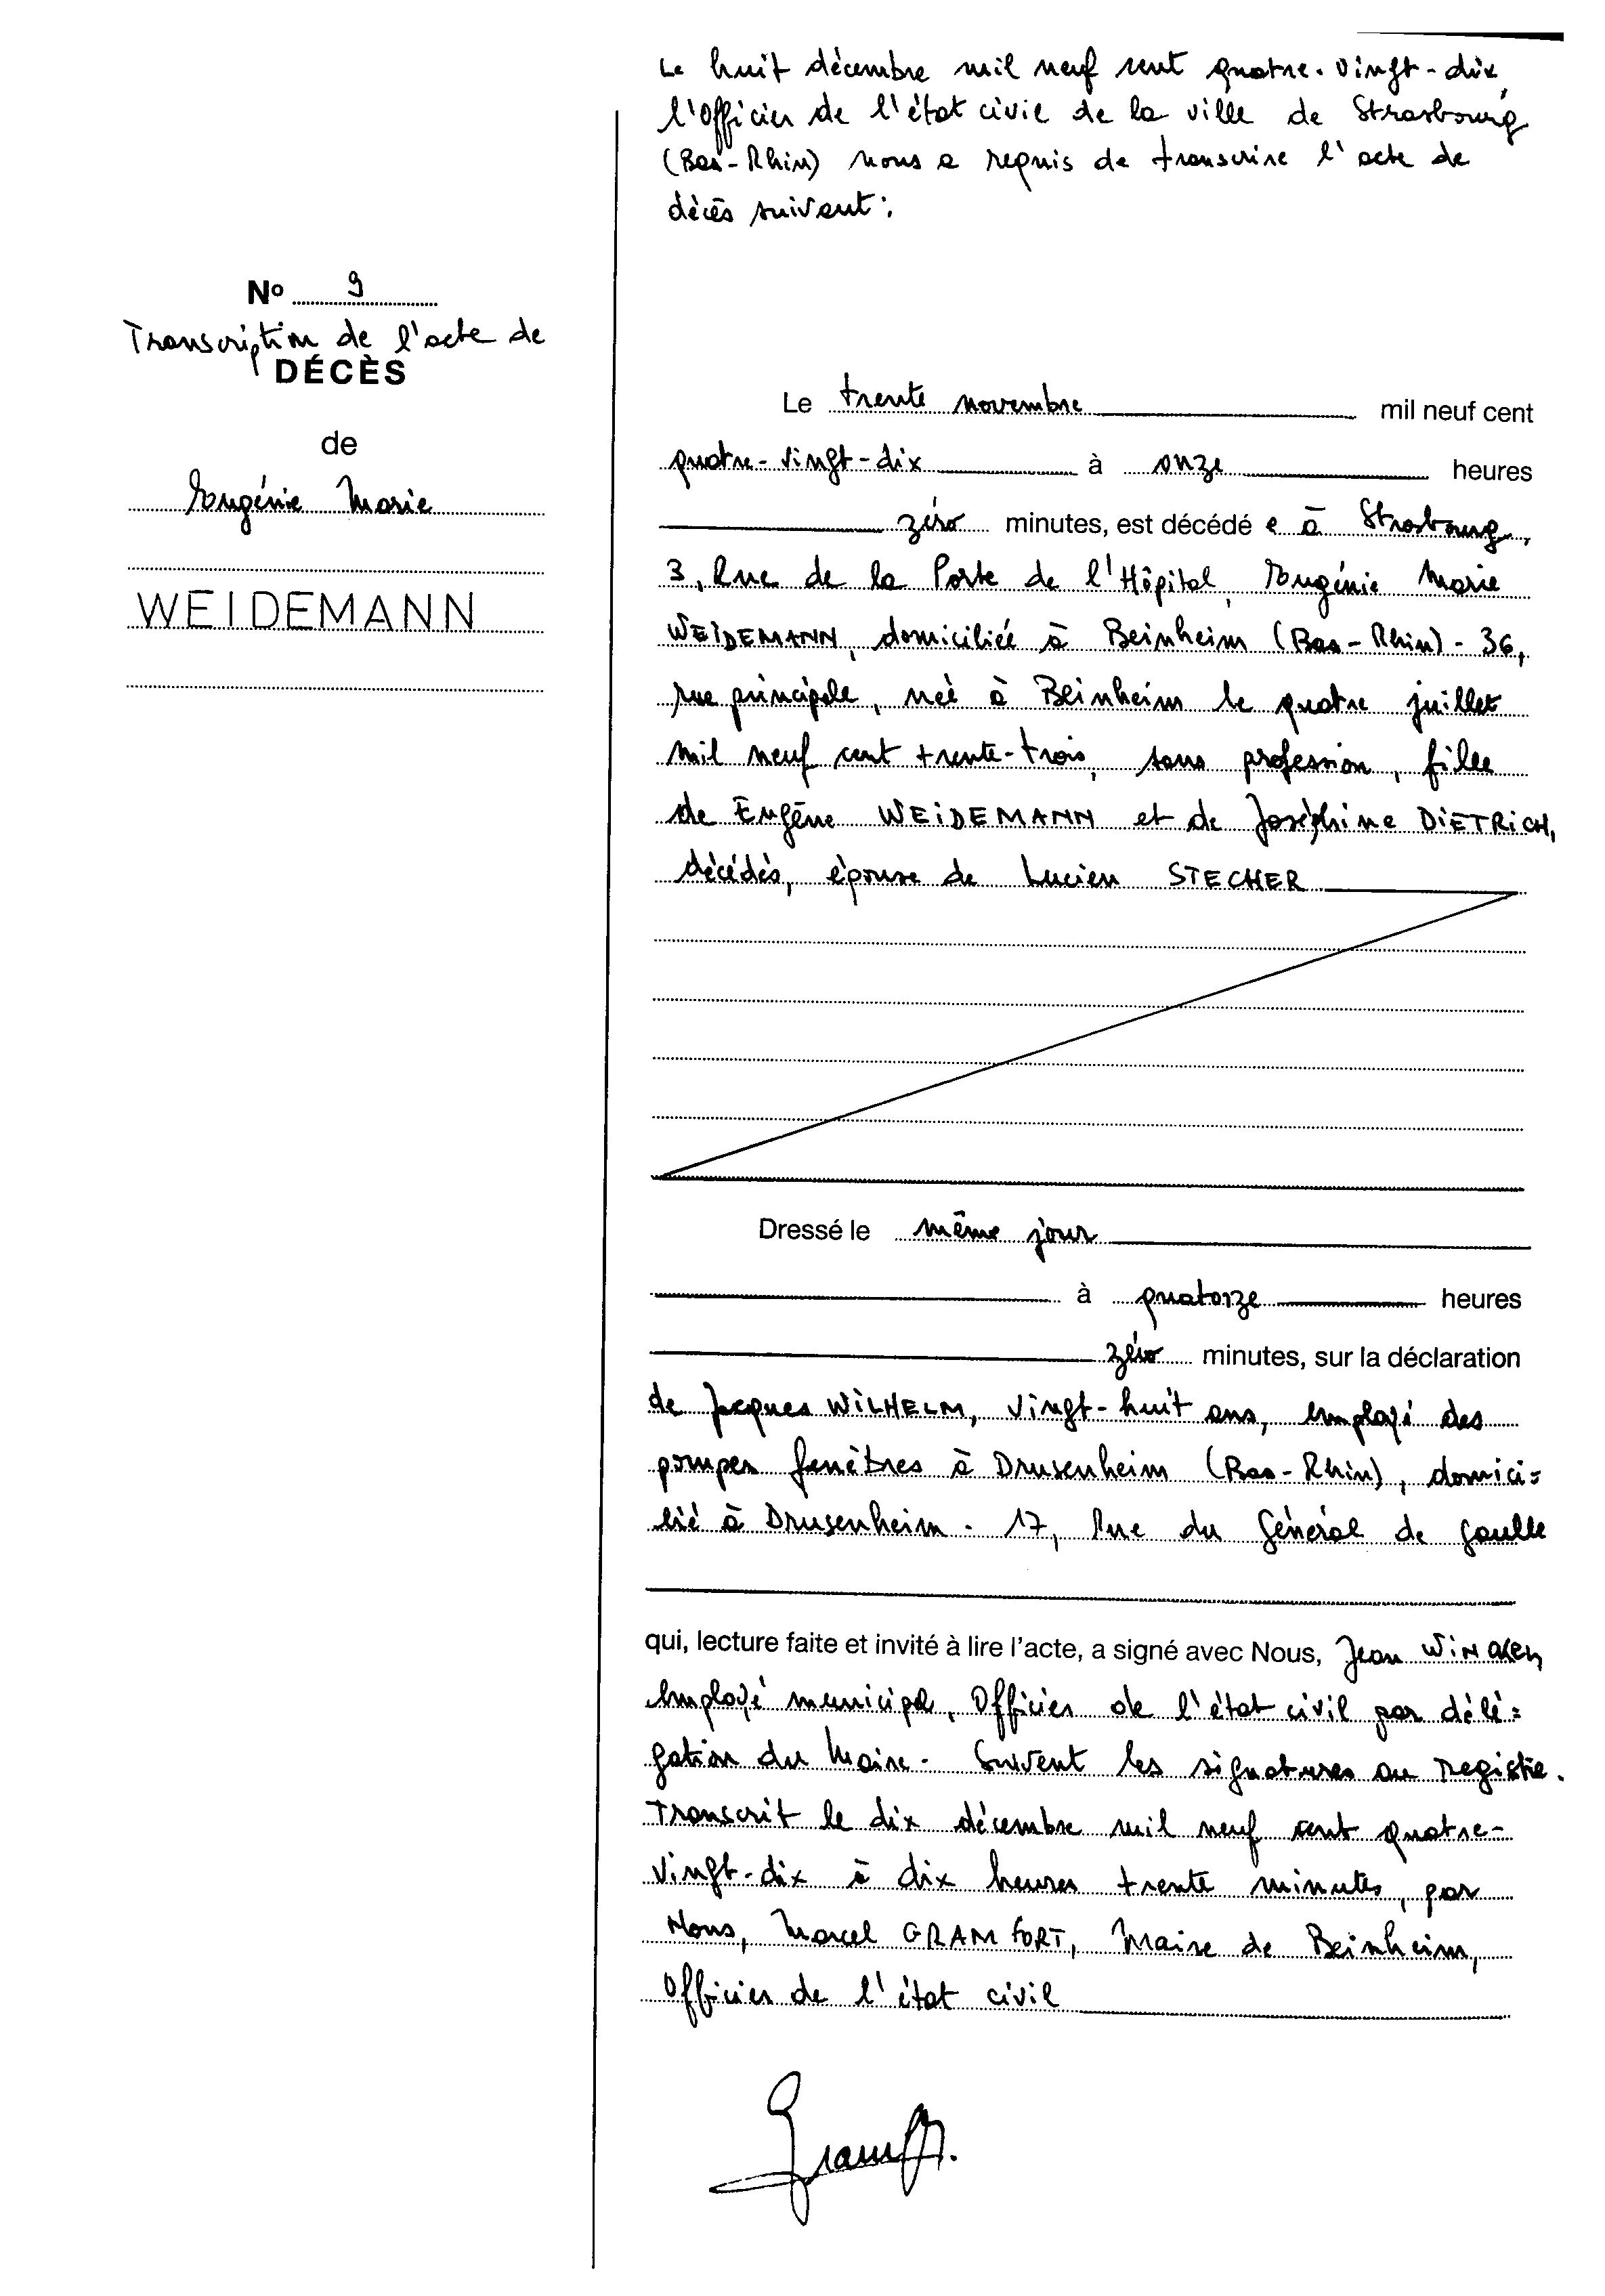 Le huit décembre mil neuf cent quatre-vingt-dix,
l'Officier de l'état civil de la ville de Strasbourg
(Bas-Rhin) nous a requis de transcrire l'acte de
décès suivant :
No 9
Transcription de l'acte de
DÉCÈS
de
Eugénie Marie
WEIDEMANN
Le trente novembre mil neuf cent
quatre-vingt-dix à onze heures
zéro minutes, est décédé e à Strasbourg,
3, Rue de la Porte de l'Hôpital, Eugénie Marie
WEIDEMANN, domiciliée à Beinheim (Bas-Rhin) - 36,
rue principale, née à Beinheim le quatre juillet
mil neuf cent trente-trois, sans profession, fille
de Eugène WEIDEMANN et de Joséphine DIETRICH,
décédés, épouse de Lucien STECHER
Dressé le même jour
à quatorze heures
zéro minutes, sur la déclaration
de Jacques WILHELM, vingt-huit ans, employé des
pompes funèbres à Drusenheim (Bas-Rhin), domici=
lié à Drusenheim - 17, Rue du Général de Gaulle
qui, lecture faite et invité à lire l'acte, a signé avec Nous, Jean
employé municipal, Officier de l'état civil par délé=
gation du Maire - Suivent les signatures au registre.
Transcrit le dix décembre mil neuf cent quatre-
vingt-dix à dix heures trente minutes, par
Nous, Marcel GRAMFORT, Maire de Beinheim,
Officier de l'état civil